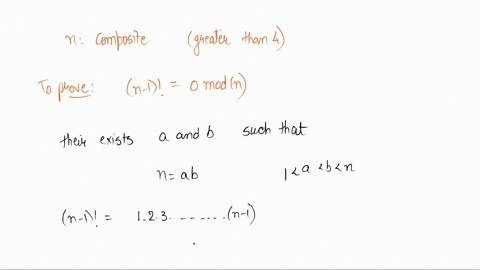 n = composite (greater than 4)
To prove: (n-1)! = 0 mod(n)
their exists a and b such that
n = ab 1 < a < b < n
(n-1)! = 1.2.3. ...... (n-1)